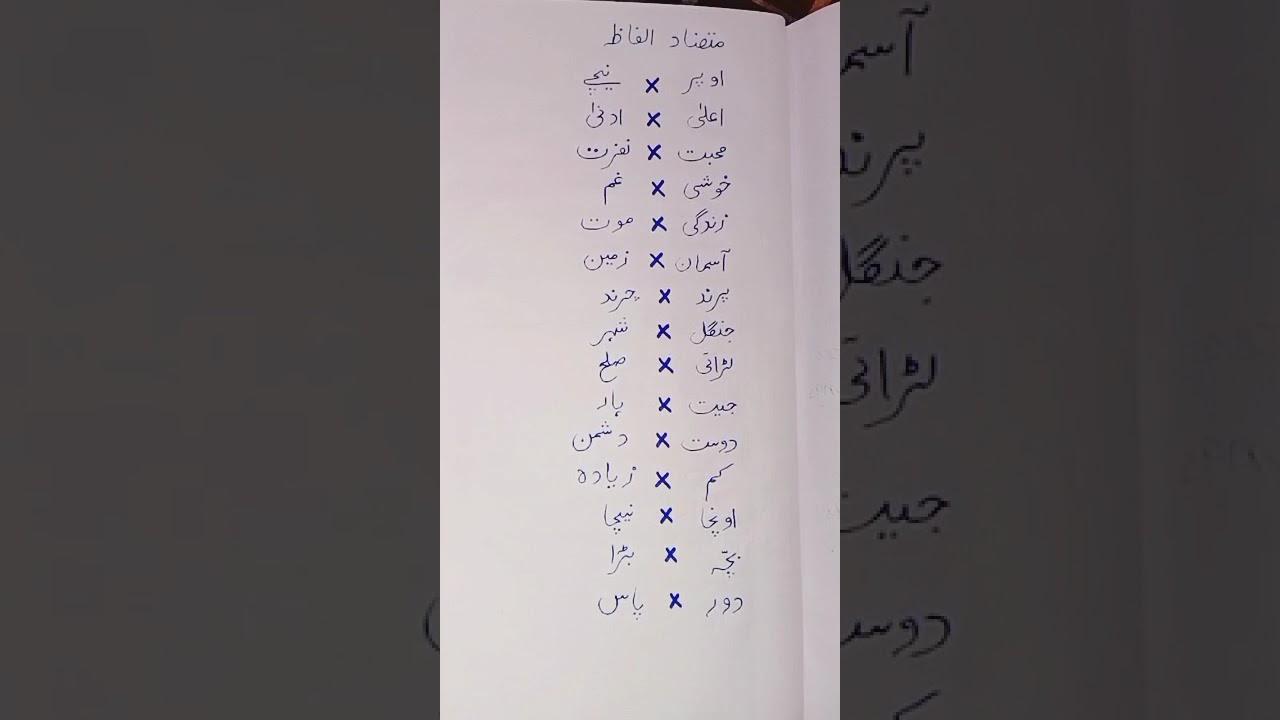 متضاد الفاظ
اوپر × نیچے
اعلیٰ × ادنیٰ
محبت × نفرت
خوشی × غم
زندگی × موت
آسمان × زمین
پرند × چرند
جنگل × شہر
لڑائی × صلح
جیت × ہار
دوست × دشمن
کم × زیادہ
اونچا × نیچا
بچّہ × بڑا
دور × پاس